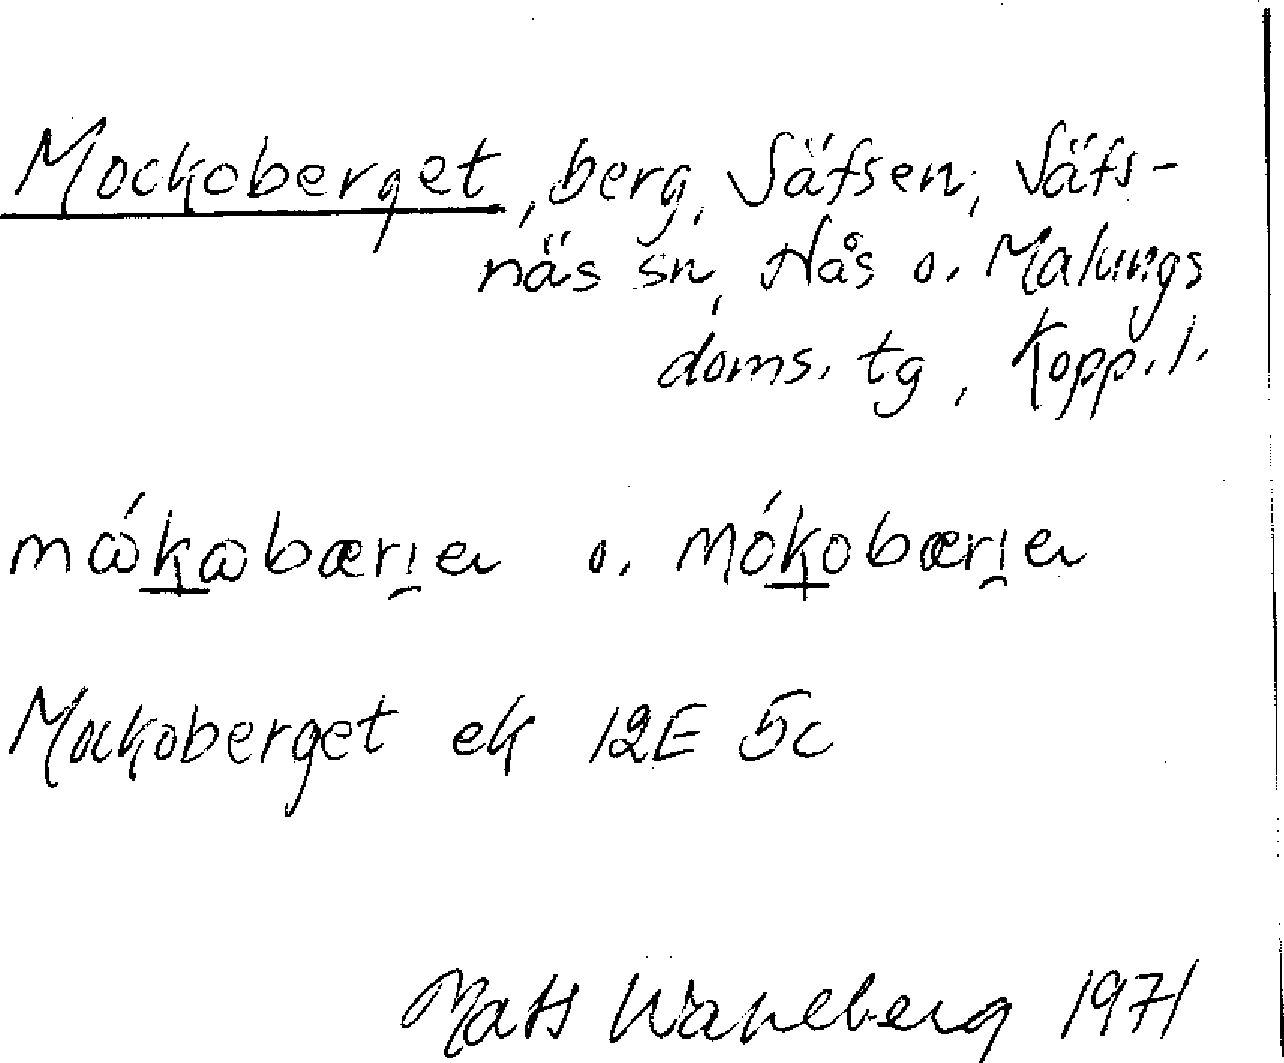 Mockoberget, berg, Säfsen, Säfs-
näs sn, Nås o. Malungs
doms. tg, Kopp. l.
mɷ́kɷbærįe o. mókobærįe
Mockoberget ek 12E 5c
Mats Wahlberg 1971